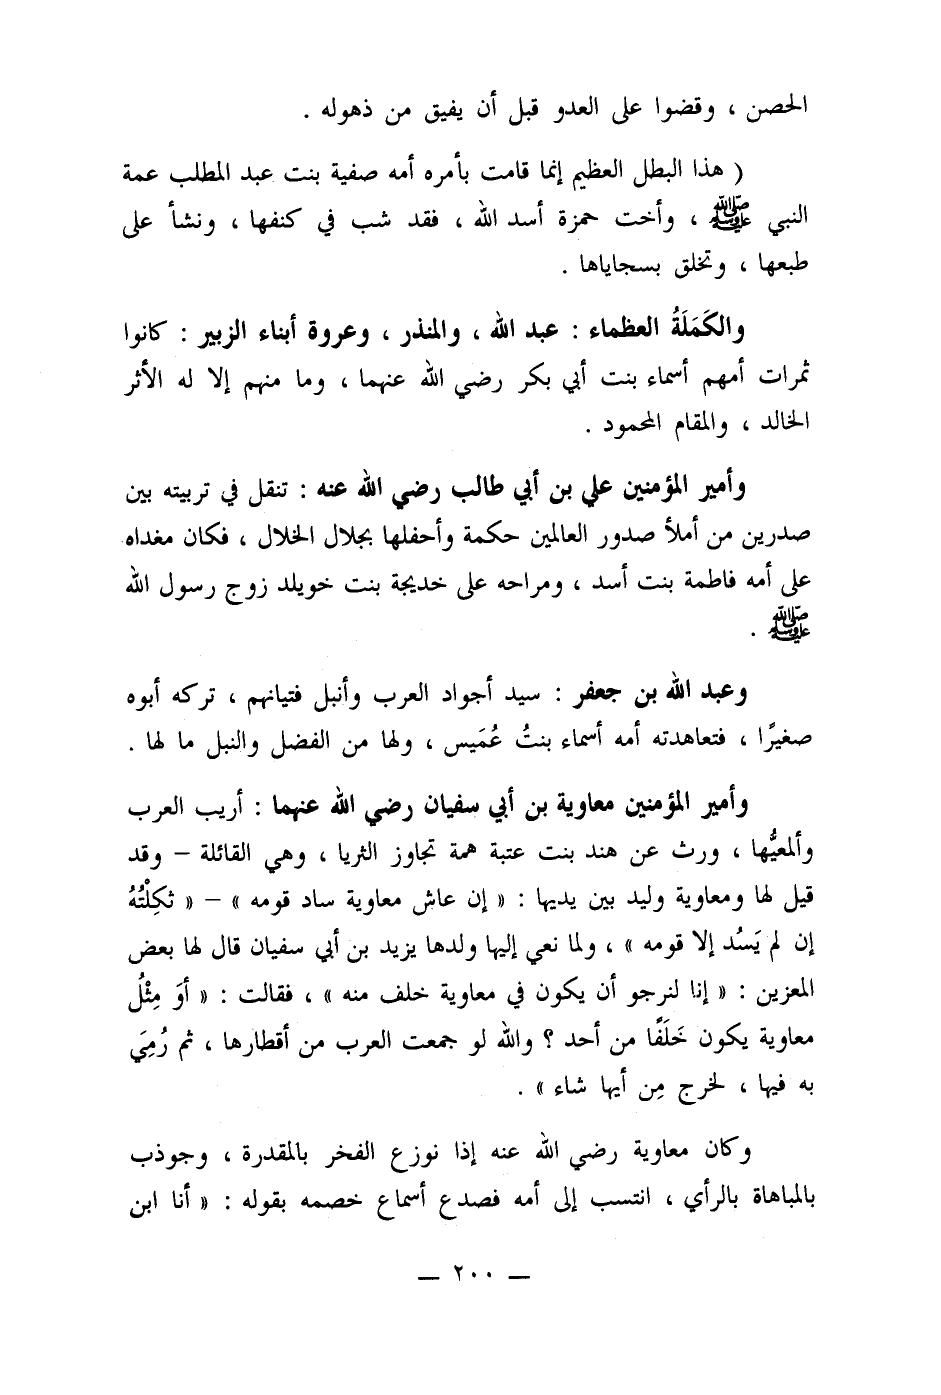 الحصن ، وقضوا على العدو قبل أن يفيق من ذهوله .
( هذا البطل العظيم إنما قامت بأمره أمه صفية بنت عبد المطلب عمة
النبي ﷺ ، وأخت حمزة أسد الله ، فقد شب في كنفها ، ونشأ على
طبعها ، وتخلق بسجاياها .
والكَمَلَةُ العظماء : عبد الله ، والمنذر ، وعروة أبناء الزبير : كانوا
ثمرات أمهم أسماء بنت أبي بكر رضي الله عنهما ، وما منهم إلا له الأثر
الخالد ، والمقام المحمود .
وأمير المؤمنين علي بن أبي طالب رضي الله عنه : تنقل في تربيته بين
صدرين من أملأ صدور العالمين حكمة وأحفلها بجلال الخلال ، فكان مغداه
على أمه فاطمة بنت أسد ، ومراحه على خديجة بنت خويلد زوج رسول الله
ﷺ .
وعبد الله بن جعفر : سيد أجواد العرب وأنبل فتيانهم ، تركه أبوه
صغيرًا ، فتعاهدته أمه أسماء بنتُ عُمَيس ، ولها من الفضل والنبل ما لها .
وأمير المؤمنين معاوية بن أبي سفيان رضي الله عنهما : أريب العرب
وألمعيُّها ، ورث عن هند بنت عتبة همة تجاوز الثريا ، وهي القائلة – وقد
قيل لها ومعاوية وليد بين يديها : « إن عاش معاوية ساد قومه » – « ثكِلْتُهُ
إن لم يَسُد إلا قومه » ، ولما نعي إليها ولدها يزيد بن أبي سفيان قال لها بعض
المعزين : « إنا لنرجو أن يكون في معاوية خلف منه » ، فقالت : « أوَ مِثْلُ
معاوية يكون خَلَفًا من أحد ؟ والله لو جمعت العرب من أقطارها ، ثم رُمِيَ
به فيها ، لخرج مِن أيها شاء » .
وكان معاوية رضي الله عنه إذا نوزع الفخر بالمقدرة ، وجوذب
بالمباهاة بالرأي ، انتسب إلى أمه فصدع أسماع خصمه بقوله : « أنا ابن
— ٢٠٠ —